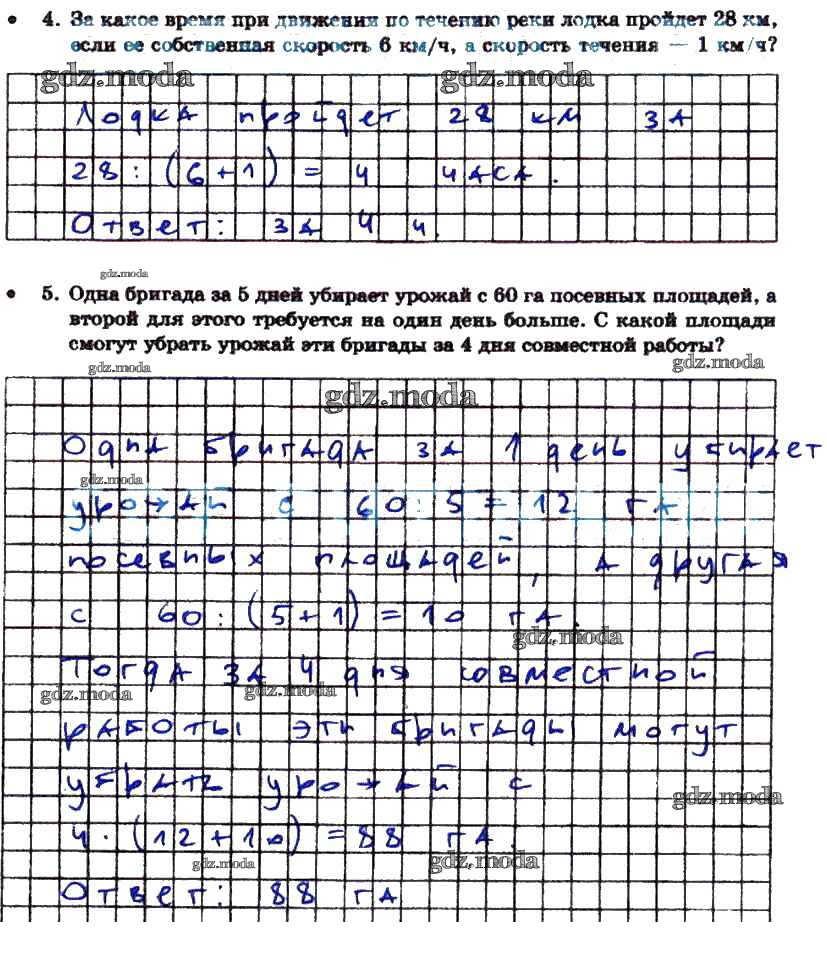 • 4. За какое время при движении по течению реки лодка пройдет 28 км,
если ее собственная скорость 6 км/ч, а скорость течения — 1 км/ч?
gdz.moda gdz.moda
Лодка пройдет 28 км за
28 : (6 + 1) = 4 часа.
Ответ: за 4 ч.
gdz.moda
• 5. Одна бригада за 5 дней убирает урожай с 60 га посевных площадей, а
второй для этого требуется на один день больше. С какой площади
смогут убрать урожай эти бригады за 4 дня совместной работы?
gdz.moda gdz.moda
gdz.moda
Одна бригада за 1 день убирает
gdz.moda
урожай с 60 : 5 = 12 га
посевных площадей, а другая
с 60 : (5 + 1) = 10 га.
gdz.moda
Тогда за 4 дня совместной
gdz.moda gdz.moda
работы эти бригады могут
убрать урожай с
gdz.moda
4 · (12 + 10) = 88 га.
gdz.moda gdz.moda
Ответ: 88 га